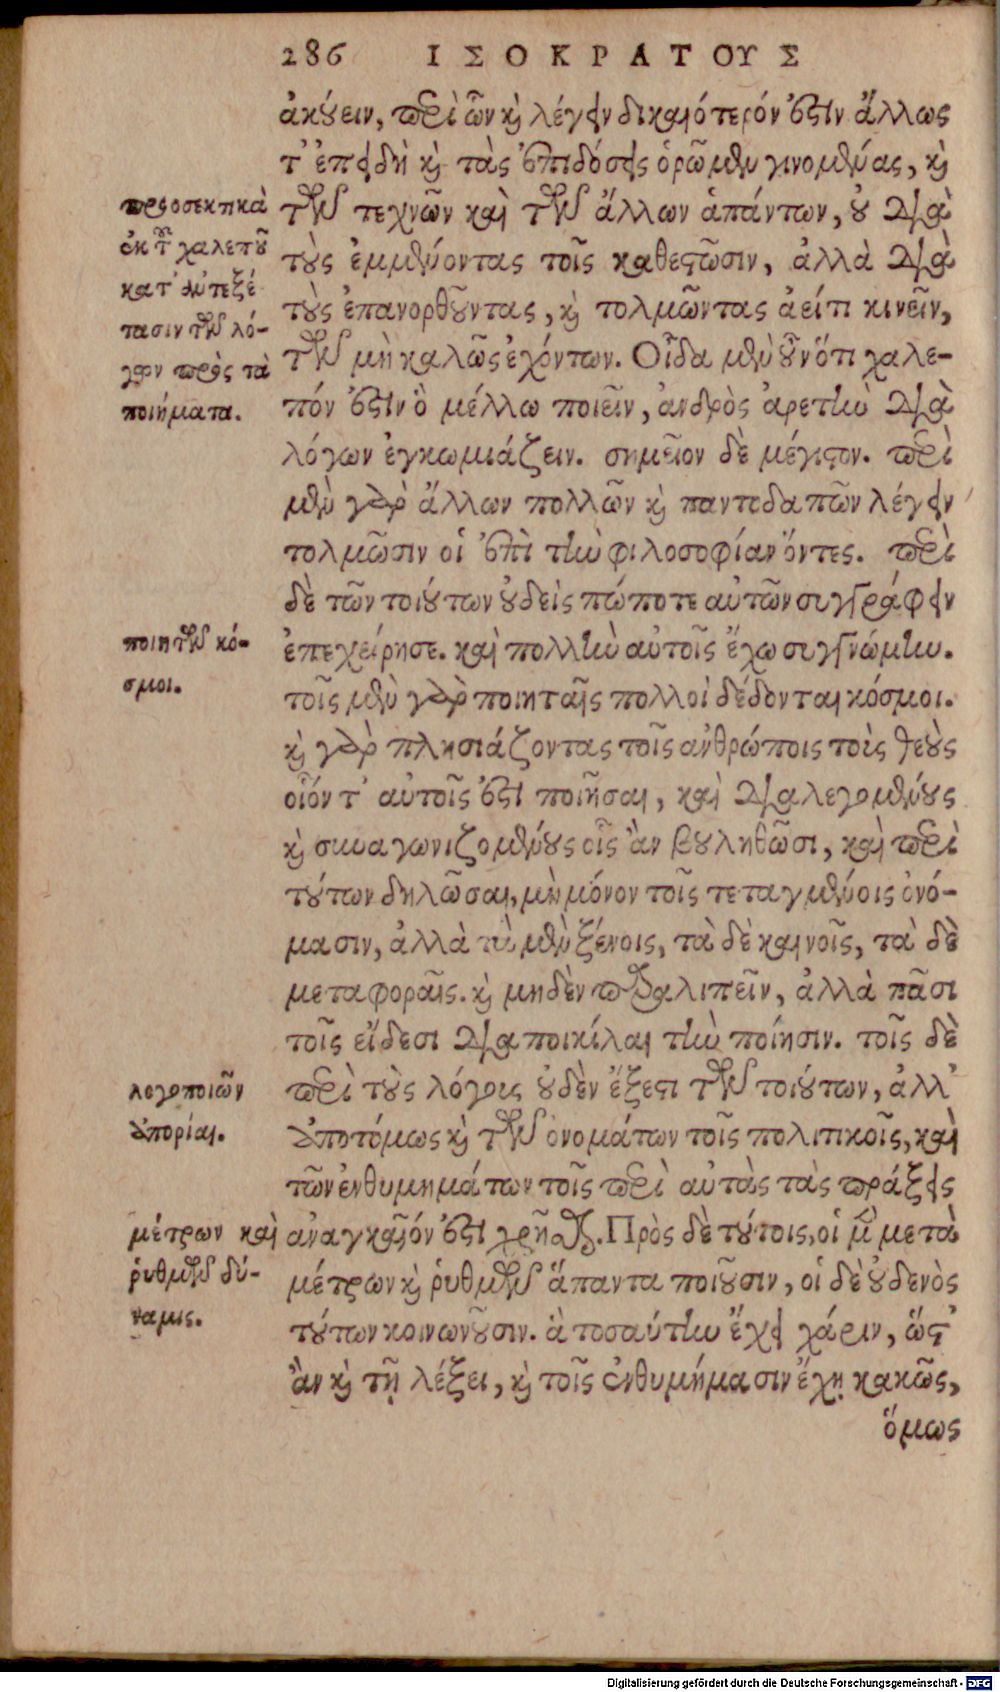 286 ΙΣΟΚΡΑΤΟΥΣ
ἀκούειν, περὶ ὧν καὶ λέγειν δικαιότερόν ἐστιν ἄλλως
τ' ἐπειδὴ καὶ τὰς ἐπιδόσεις ὁρῶμεν γινομένας, καὶ
τῶν τεχνῶν καὶ τῶν ἄλλων ἁπάντων, οὐ διὰ
τοὺς ἐμμένοντας τοῖς καθεστῶσιν, ἀλλὰ διὰ
τοὺς ἐπανορθοῦντας, καὶ τολμῶντας ἀεί τι κινεῖν,
τῶν μὴ καλῶς ἐχόντων. Οἶδα μὲν οὖν ὅτι χαλε-
πόν ἐστιν ὃ μέλλω ποιεῖν, ἀνδρὸς ἀρετὴν διὰ
λόγων ἐγκωμιάζειν. σημεῖον δὲ μέγιστον. περὶ
μὲν γὰρ ἄλλων πολλῶν καὶ παντοδαπῶν λέγειν
τολμῶσιν οἱ ἐπὶ τὴν φιλοσοφίαν ὄντες. περὶ
δὲ τῶν τοιούτων οὐδεὶς πώποτε αὐτῶν συγγράφειν
ἐπεχείρησε. καὶ πολλὴν αὐτοῖς ἔχω συγγνώμην.
τοῖς μὲν γὰρ ποιηταῖς πολλοὶ δέδονται κόσμοι.
καὶ γὰρ πλησιάζοντας τοῖς ἀνθρώποις τοὺς θεοὺς
οἷόν τ' αὐτοῖς ἐστι ποιῆσαι, καὶ διαλεγομένους
καὶ συναγωνιζομένους οἷς ἂν βουληθῶσι, καὶ περὶ
τούτων δηλῶσαι, μὴ μόνον τοῖς τεταγμένοις ὀνό-
μασιν, ἀλλὰ τὰ μὲν ξένοις, τὰ δὲ καινοῖς, τὰ δὲ
μεταφοραῖς. καὶ μηδὲν παραλιπεῖν, ἀλλὰ πᾶσι
τοῖς εἴδεσι διαποικίλαι τὴν ποίησιν. τοῖς δὲ
περὶ τοὺς λόγους οὐδὲν ἔξεστι τῶν τοιούτων, ἀλλ'
ἀποτόμως καὶ τῶν ὀνομάτων τοῖς πολιτικοῖς, καὶ
τῶν ἐνθυμημάτων τοῖς περὶ αὐτὰς τὰς πράξεις
ἀναγκαῖόν ἐστι χρῆσθαι. Πρὸς δὲ τούτοις, οἱ μὲν μετὰ
μέτρων καὶ ῥυθμῶν ἅπαντα ποιοῦσιν, οἱ δὲ οὐδενὸς
τούτων κοινωνοῦσιν. ἃ τοσαύτην ἔχει χάριν, ὥστ'
ἂν καὶ τῇ λέξει, καὶ τοῖς ἐνθυμήμασιν ἔχῃ κακῶς,
ὅμως
προσεκτικὰ
ἐκ τοῦ χαλεποῦ
κατ' ἀντεξέ
τασιν τῶν λό-
γων πρὸς τὰ
ποιήματα.
ποιητῶν κό-
σμοι.
λογοποιῶν
ἀπορίαι.
μέτρων καὶ
ῥυθμῶν δύ-
ναμις.
Digitalisierung gefördert durch die Deutsche Forschungsgemeinschaft - DFG